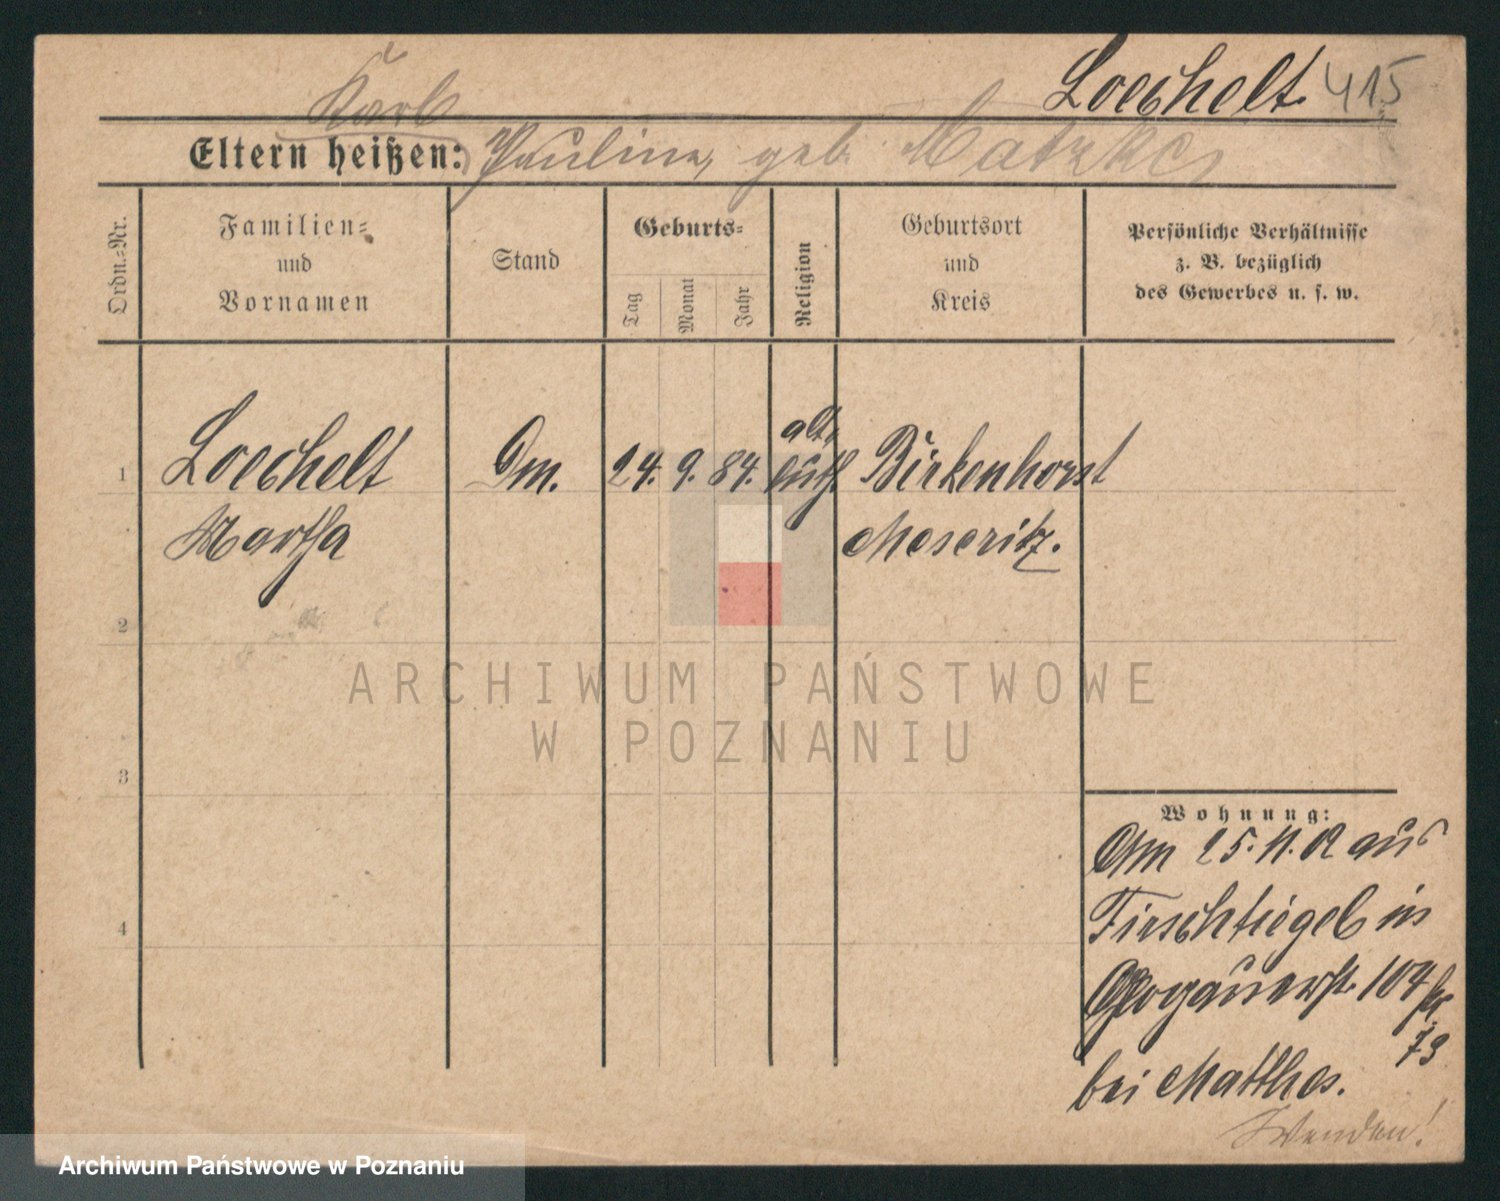 Loechelt. 415
Karl
Eltern heißen: Pauline, geb. Matzke
Ordn.-Nr.
Familien-
und
Vornamen
Stand
Geburts-
Tag
Monat
Jahr
Religion
Geburtsort
und
Kreis
Persönliche Verhältnisse
z. B. bezüglich
des Gewerbes u. s. w.
alt
1 Loechelt Dm. 24. 9. 84. luth Birkenhorst
Martha Meseritz.
2
ARCHIWUM PAŃSTWOWE
W POZNANIU
3
4
Wohnung:
Am 25.11.02 aus
Tirschtiegel in
Glogauerstr. 104
73
bei Matthes.
Wenden!
Archiwum Państwowe w Poznaniu